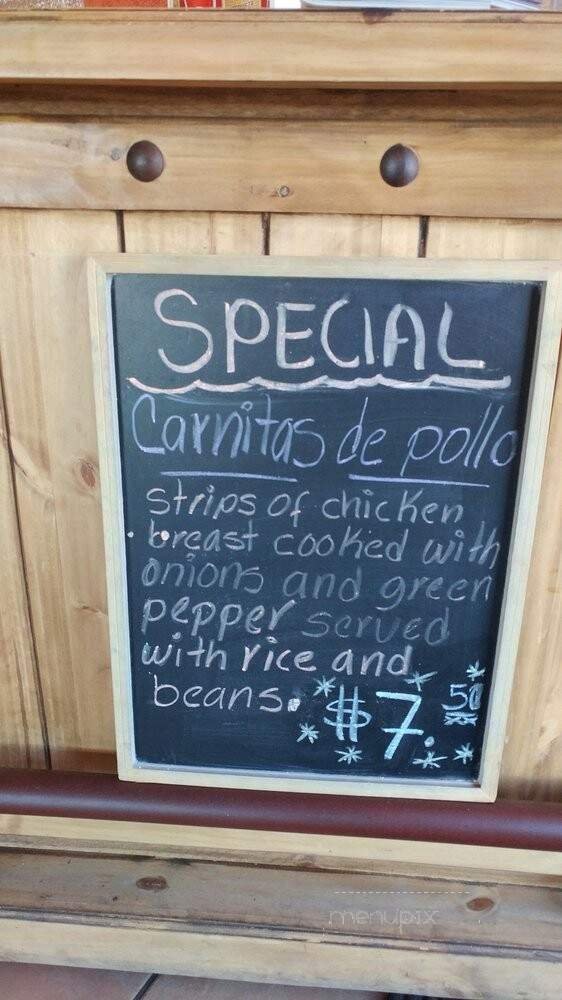 SPECIAL
Carnitas de pollo
strips of chicken
breast cooked with
onions and green
pepper served
with rice and
beans.
$7.50
menupix